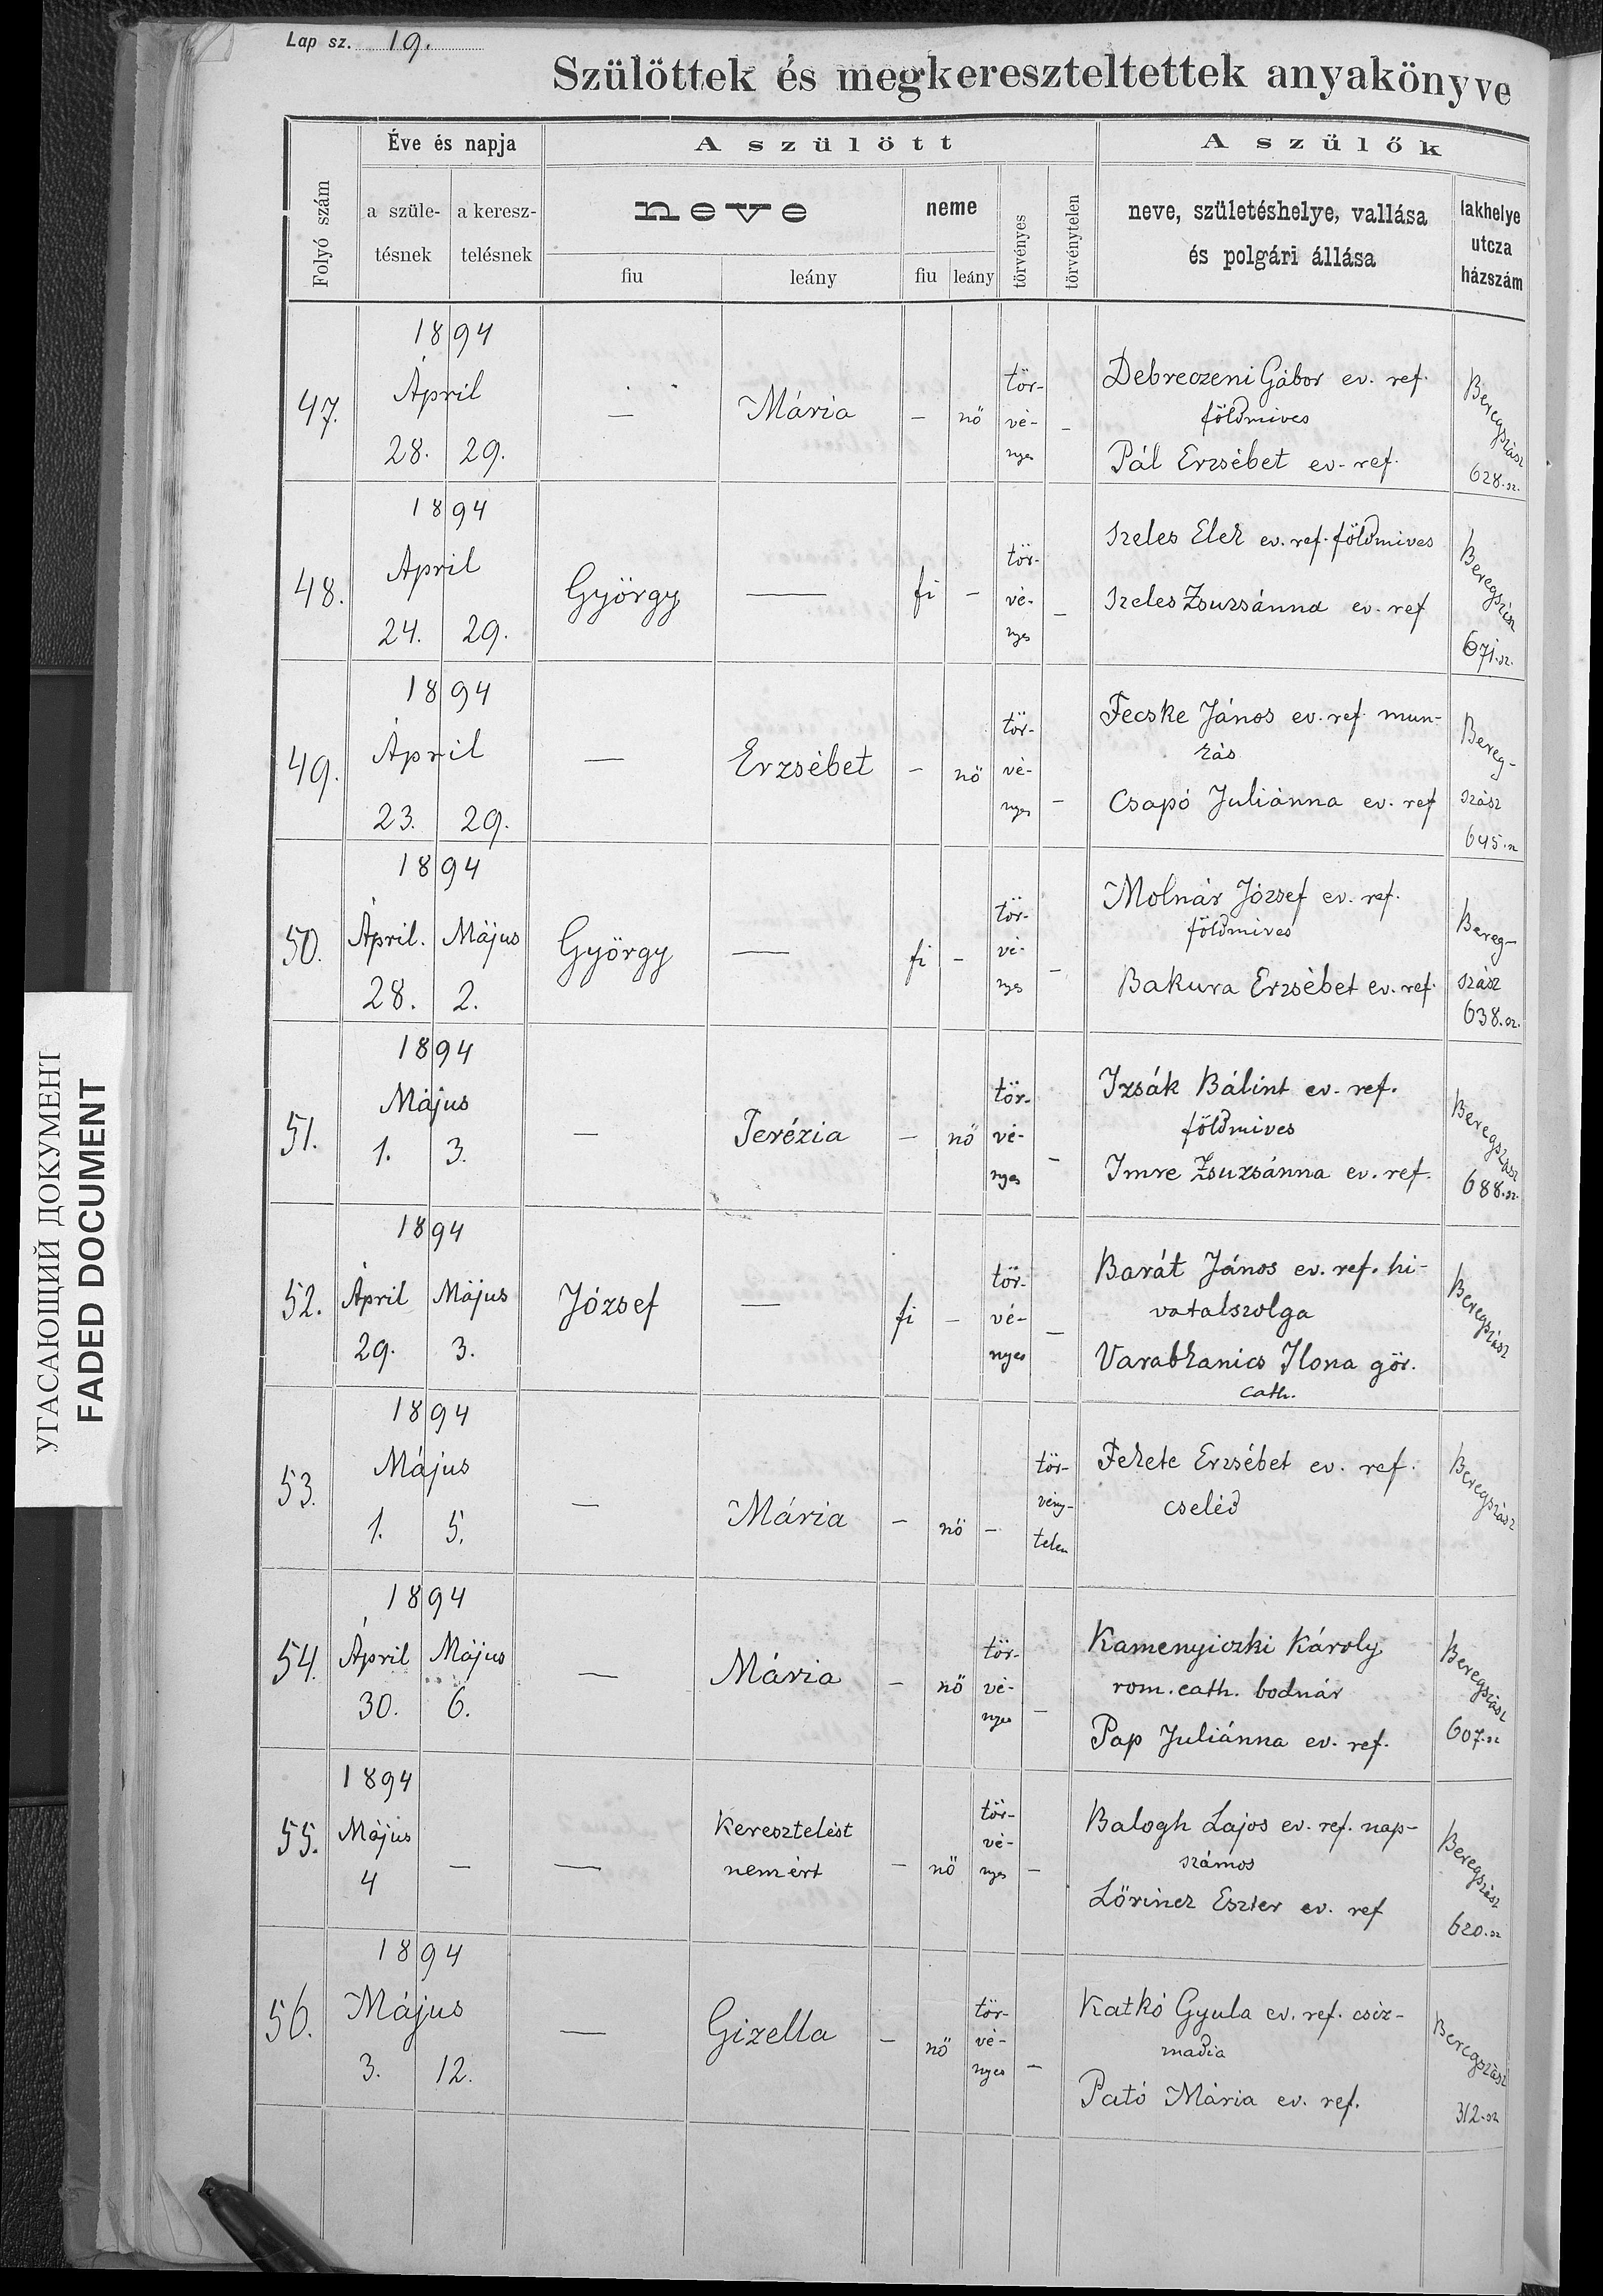 Lap sz. 19.
Szülöttek és megkereszteltettek anyakönyve
Folyó szám
Éve és napja
a születésnek
a keresztelésnek
A szülött
neve
fiu
leány
neme
fiu
leány
törvényes
törvénytelen
A szülők
neve, születéshelye, vallása
és polgári állása
lakhelye
utcza
házszám
47.
1894
Ápril
28. 29.
—
Mária
— nö
tör-
vé-
nyes
—
Debreczeni Gábor ev. ref.
földmives
Pál Erzsébet ev. ref.
Beregszász
628. sz.
48.
1894
April
24. 29.
György
—
fi —
tör-
vé-
nyes
—
Szeles Elek ev. ref. földmives
Szeles Zsuzsánna ev. ref
Beregszász
671. sz.
49.
1894
Ápril
23. 29.
—
Erzsébet
— nö
tör-
vé-
nyes
—
Fecske János ev. ref. mun-
kás
Csapó Juliánna ev. ref
Bereg-
szász
645. sz
50.
1894
Ápril. Május
28. 2.
György
—
fi —
tör-
vé-
nyes
—
Molnár József ev. ref.
földmives
Bakura Erzsébet ev. ref.
Bereg-
szász
638. sz.
51.
1894
Május
1. 3.
—
Terézia
— nö
tör-
vé-
nyes
—
Izsák Bálint ev. ref.
földmives
Imre Zsuzsánna ev. ref.
Beregszász
688. sz.
52.
1894
Ápril Május
29. 3.
József
—
fi —
tör-
vé-
nyes
—
Barát János ev. ref. hi-
vatalszolga
Varabkanics Ilona gör.
cath.
Beregszász
53.
1894
Május
1. 5.
—
Mária
— nö —
tör-
vény-
telen
Fekete Erzsébet ev. ref.
cseléd
Beregszász
54.
1894
Ápril Május
30. 6.
—
Mária
— nö
tör-
vé-
nyes
—
Kamenyiczki Károly
rom. cath. bodnár
Pap Juliánna ev. ref.
Beregszász
607. sz
55.
1894
Május
4 —
—
Keresztelést
nem ért
— nö
tör-
vé-
nyes
—
Balogh Lajos ev. ref. nap-
számos
Lörincz Eszter ev. ref
Beregszász
620. sz
56.
1894
Május
3. 12.
—
Gizella
— nö
tör-
vé-
nyes
—
Katkó Gyula ev. ref. csiz-
madia
Pató Mária ev. ref.
Beregszász
312. sz
УГАСАЮЩИЙ ДОКУМЕНТ
FADED DOCUMENT